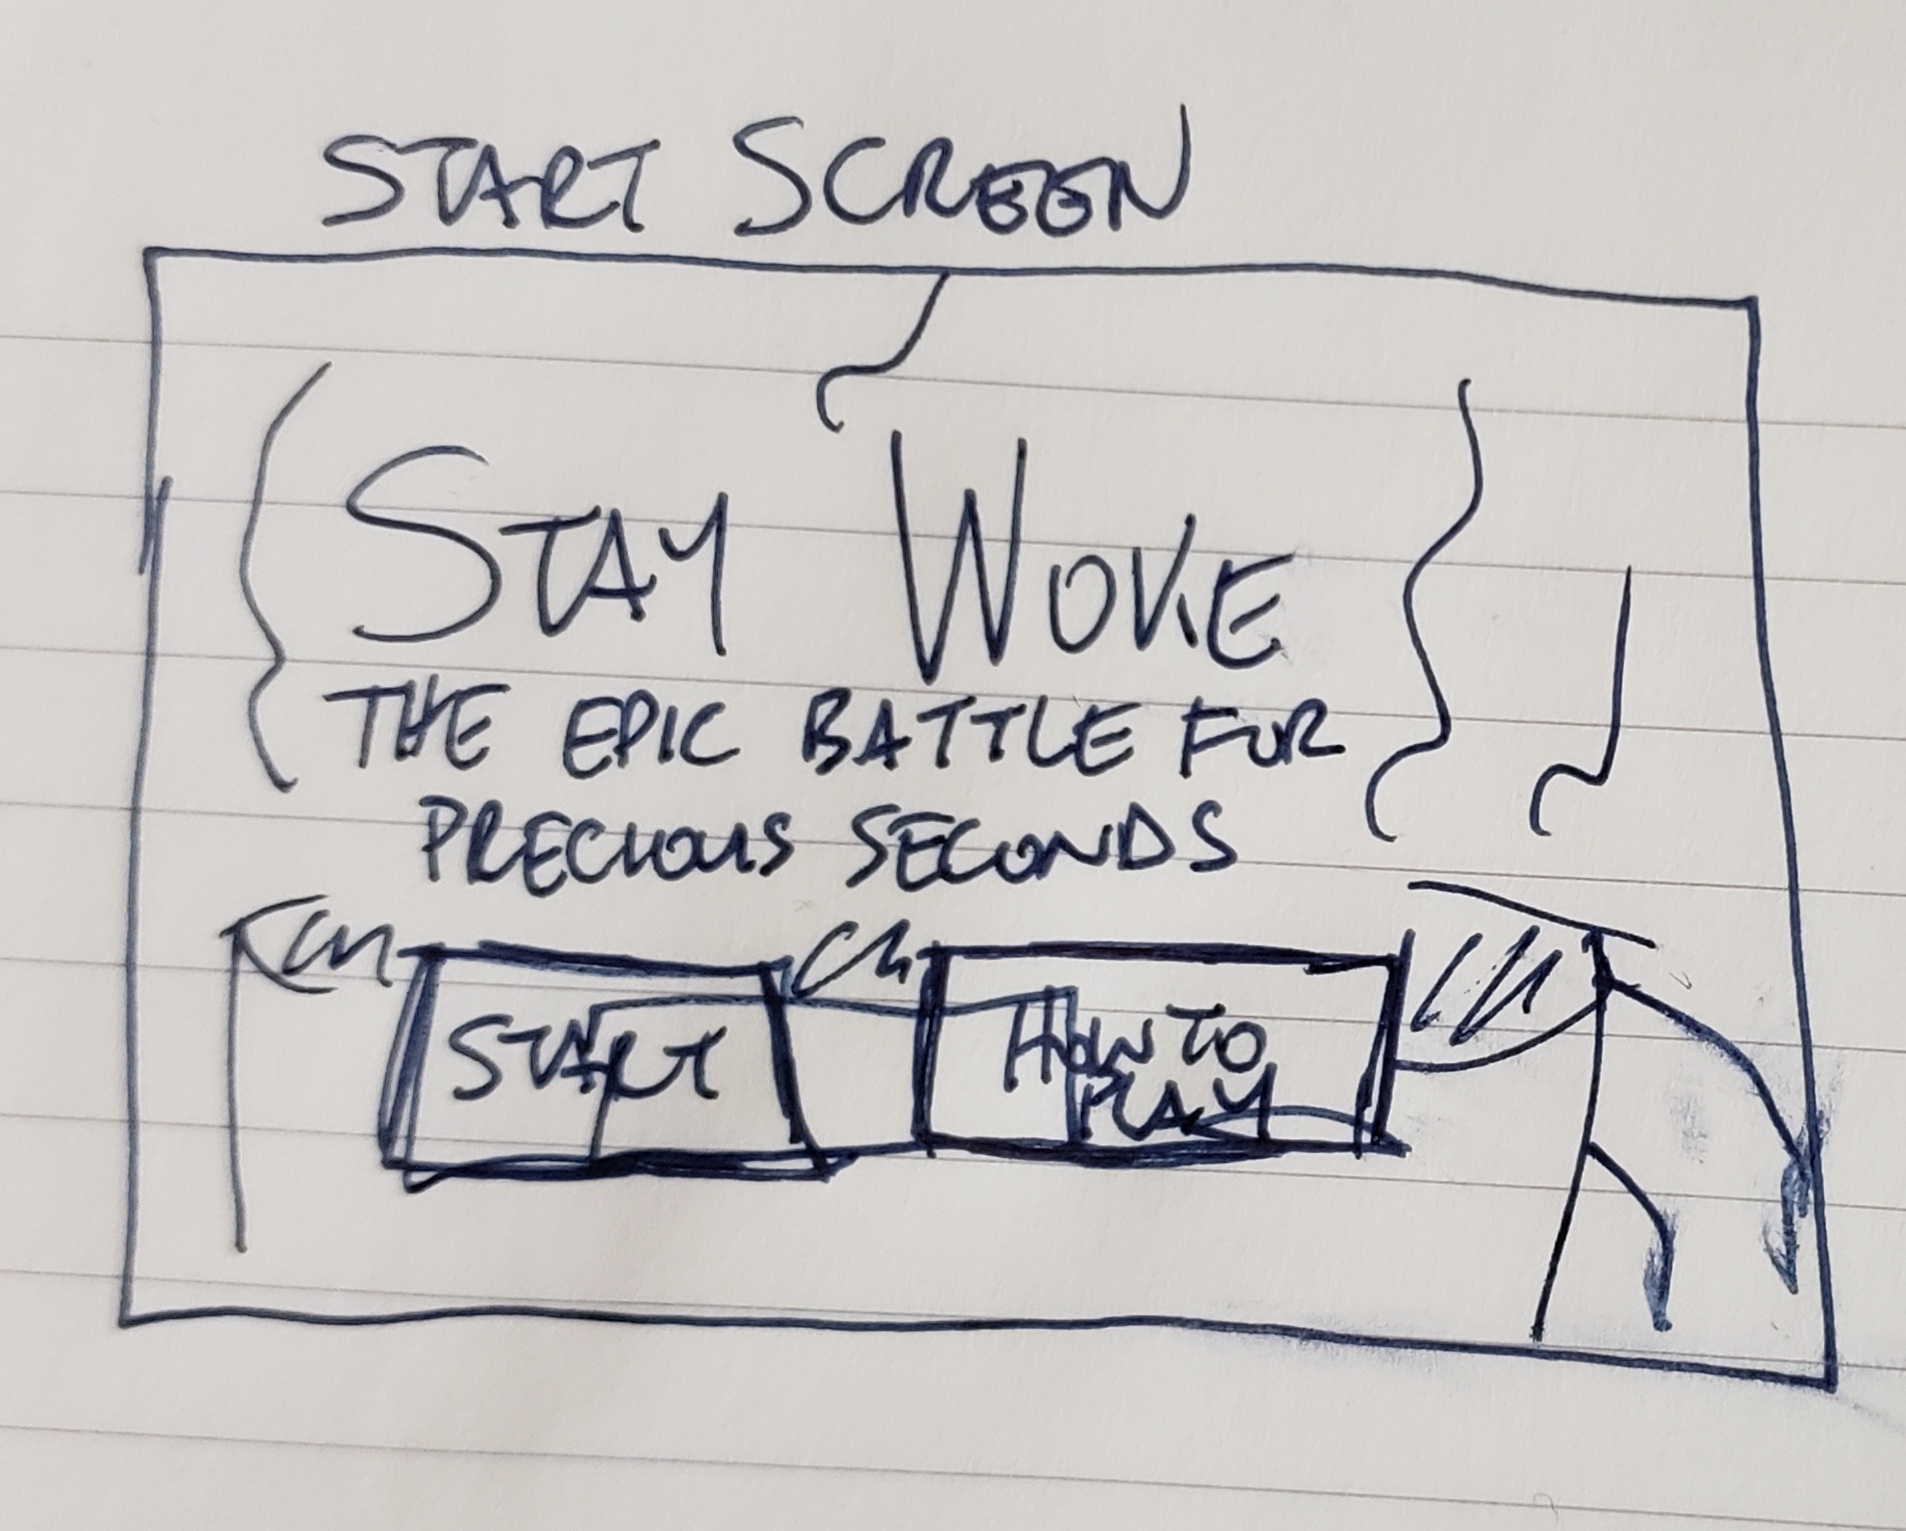 START SCREEN
STAY WOKE
THE EPIC BATTLE FOR
PRECIOUS SECONDS
START
HOW TO
PLAY